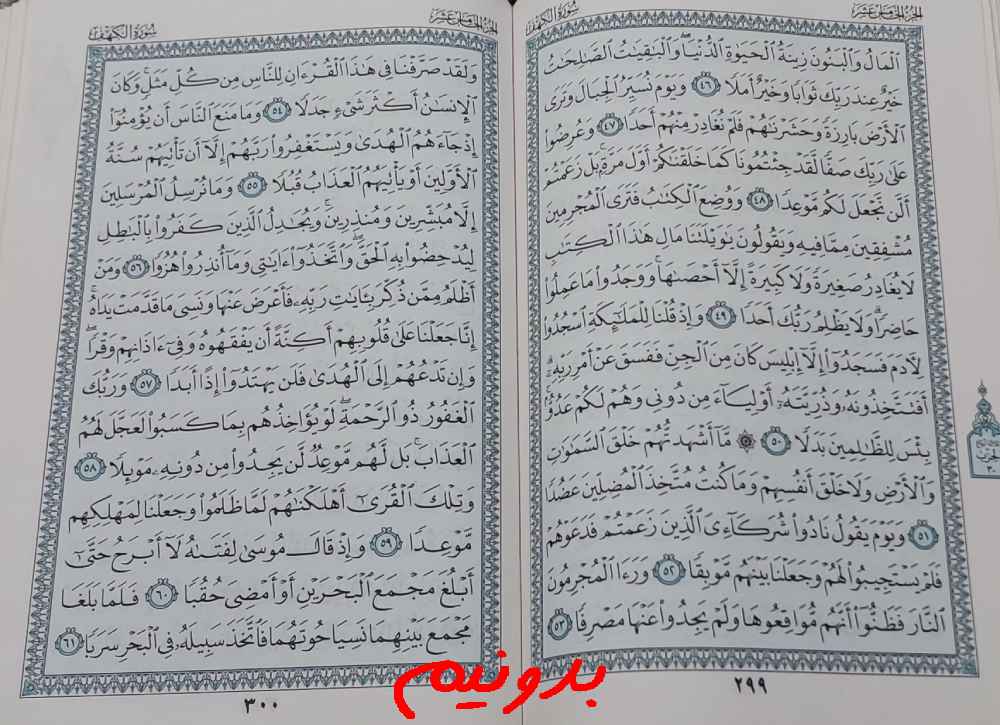 سورة الكهف
الجزء الخامس عشر
ٱلْمَالُ وَٱلْبَنُونَ زِينَةُ ٱلْحَيَوٰةِ ٱلدُّنْيَا وَٱلْبَٰقِيَٰتُ ٱلصَّٰلِحَٰتُ
خَيْرٌ عِندَ رَبِّكَ ثَوَابًا وَخَيْرٌ أَمَلًا ٤٦ وَيَوْمَ نُسَيِّرُ ٱلْجِبَالَ وَتَرَى
ٱلْأَرْضَ بَارِزَةً وَحَشَرْنَٰهُمْ فَلَمْ نُغَادِرْ مِنْهُمْ أَحَدًا ٤٧ وَعُرِضُوا۟
عَلَىٰ رَبِّكَ صَفًّا لَّقَدْ جِئْتُمُونَا كَمَا خَلَقْنَٰكُمْ أَوَّلَ مَرَّةٍۭ بَلْ زَعَمْتُمْ
أَلَّن نَّجْعَلَ لَكُم مَّوْعِدًا ٤٨ وَوُضِعَ ٱلْكِتَٰبُ فَتَرَى ٱلْمُجْرِمِينَ
مُشْفِقِينَ مِمَّا فِيهِ وَيَقُولُونَ يَٰوَيْلَتَنَا مَالِ هَٰذَا ٱلْكِتَٰبِ
لَا يُغَادِرُ صَغِيرَةً وَلَا كَبِيرَةً إِلَّآ أَحْصَىٰهَا وَوَجَدُوا۟ مَا عَمِلُوا۟
حَاضِرًا وَلَا يَظْلِمُ رَبُّكَ أَحَدًا ٤٩ وَإِذْ قُلْنَا لِلْمَلَٰٓئِكَةِ ٱسْجُدُوا۟
لِءَادَمَ فَسَجَدُوٓا۟ إِلَّآ إِبْلِيسَ كَانَ مِنَ ٱلْجِنِّ فَفَسَقَ عَنْ أَمْرِ رَبِّهِۦٓ
أَفَتَتَّخِذُونَهُۥ وَذُرِّيَّتَهُۥٓ أَوْلِيَآءَ مِن دُونِى وَهُمْ لَكُمْ عَدُوٌّۢ
بِئْسَ لِلظَّٰلِمِينَ بَدَلًا ٥٠ ۞ مَّآ أَشْهَدتُّهُمْ خَلْقَ ٱلسَّمَٰوَٰتِ
وَٱلْأَرْضِ وَلَا خَلْقَ أَنفُسِهِمْ وَمَا كُنتُ مُتَّخِذَ ٱلْمُضِلِّينَ عَضُدًا
٥١ وَيَوْمَ يَقُولُ نَادُوا۟ شُرَكَآءِىَ ٱلَّذِينَ زَعَمْتُمْ فَدَعَوْهُمْ
فَلَمْ يَسْتَجِيبُوا۟ لَهُمْ وَجَعَلْنَا بَيْنَهُم مَّوْبِقًا ٥٢ وَرَءَا ٱلْمُجْرِمُونَ
ٱلنَّارَ فَظَنُّوٓا۟ أَنَّهُم مُّوَاقِعُوهَا وَلَمْ يَجِدُوا۟ عَنْهَا مَصْرِفًا ٥٣
٢٩٩
الحزب
٣٠
سورة الكهف
الجزء الخامس عشر
وَلَقَدْ صَرَّفْنَا فِى هَٰذَا ٱلْقُرْءَانِ لِلنَّاسِ مِن كُلِّ مَثَلٍ وَكَانَ
ٱلْإِنسَٰنُ أَكْثَرَ شَىْءٍ جَدَلًا ٥٤ وَمَا مَنَعَ ٱلنَّاسَ أَن يُؤْمِنُوٓا۟
إِذْ جَآءَهُمُ ٱلْهُدَىٰ وَيَسْتَغْفِرُوا۟ رَبَّهُمْ إِلَّآ أَن تَأْتِيَهُمْ سُنَّةُ
ٱلْأَوَّلِينَ أَوْ يَأْتِيَهُمُ ٱلْعَذَابُ قُبُلًا ٥٥ وَمَا نُرْسِلُ ٱلْمُرْسَلِينَ
إِلَّا مُبَشِّرِينَ وَمُنذِرِينَ وَيُجَٰدِلُ ٱلَّذِينَ كَفَرُوا۟ بِٱلْبَٰطِلِ
لِيُدْحِضُوا۟ بِهِ ٱلْحَقَّ وَٱتَّخَذُوٓا۟ ءَايَٰتِى وَمَآ أُنذِرُوا۟ هُزُوًا ٥٦ وَمَنْ
أَظْلَمُ مِمَّن ذُكِّرَ بِـَٔايَٰتِ رَبِّهِۦ فَأَعْرَضَ عَنْهَا وَنَسِىَ مَا قَدَّمَتْ يَدَاهُ
إِنَّا جَعَلْنَا عَلَىٰ قُلُوبِهِمْ أَكِنَّةً أَن يَفْقَهُوهُ وَفِىٓ ءَاذَانِهِمْ وَقْرًا
وَإِن تَدْعُهُمْ إِلَى ٱلْهُدَىٰ فَلَن يَهْتَدُوٓا۟ إِذًا أَبَدًا ٥٧ وَرَبُّكَ
ٱلْغَفُورُ ذُو ٱلرَّحْمَةِ لَوْ يُؤَاخِذُهُم بِمَا كَسَبُوا۟ لَعَجَّلَ لَهُمُ
ٱلْعَذَابَ بَل لَّهُم مَّوْعِدٌ لَّن يَجِدُوا۟ مِن دُونِهِۦ مَوْئِلًا ٥٨
وَتِلْكَ ٱلْقُرَىٰٓ أَهْلَكْنَٰهُمْ لَمَّا ظَلَمُوا۟ وَجَعَلْنَا لِمَهْلِكِهِم
مَّوْعِدًا ٥٩ وَإِذْ قَالَ مُوسَىٰ لِفَتَىٰهُ لَآ أَبْرَحُ حَتَّىٰٓ
أَبْلُغَ مَجْمَعَ ٱلْبَحْرَيْنِ أَوْ أَمْضِىَ حُقُبًا ٦٠ فَلَمَّا بَلَغَا
مَجْمَعَ بَيْنِهِمَا نَسِيَا حُوتَهُمَا فَٱتَّخَذَ سَبِيلَهُۥ فِى ٱلْبَحْرِ سَرَبًا ٦١
٣٠٠
بدونیم